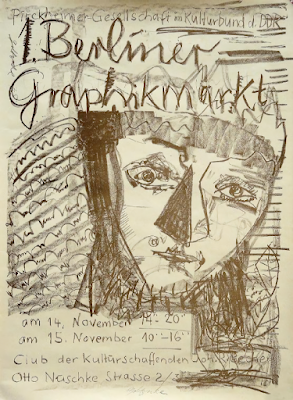 Pirckheimer-Gesellschaft im Kulturbund d. DDR
1. Berliner
Graphikmarkt
am 14. November 14⁰⁰-20⁰⁰
am 15. November 10⁰⁰-16⁰⁰
Club der Kulturschaffenden
Otto Nuschke Strasse 2/3